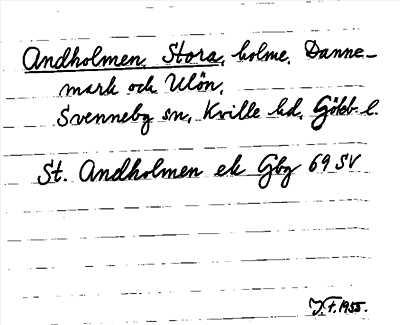 Andholmen, Stora, holme, Danne-
mark och Ulön,
Svenneby sn, Kville hd, Göteb. l.
St. Andholmen ek Gbg 69 SV
J.F. 1955.